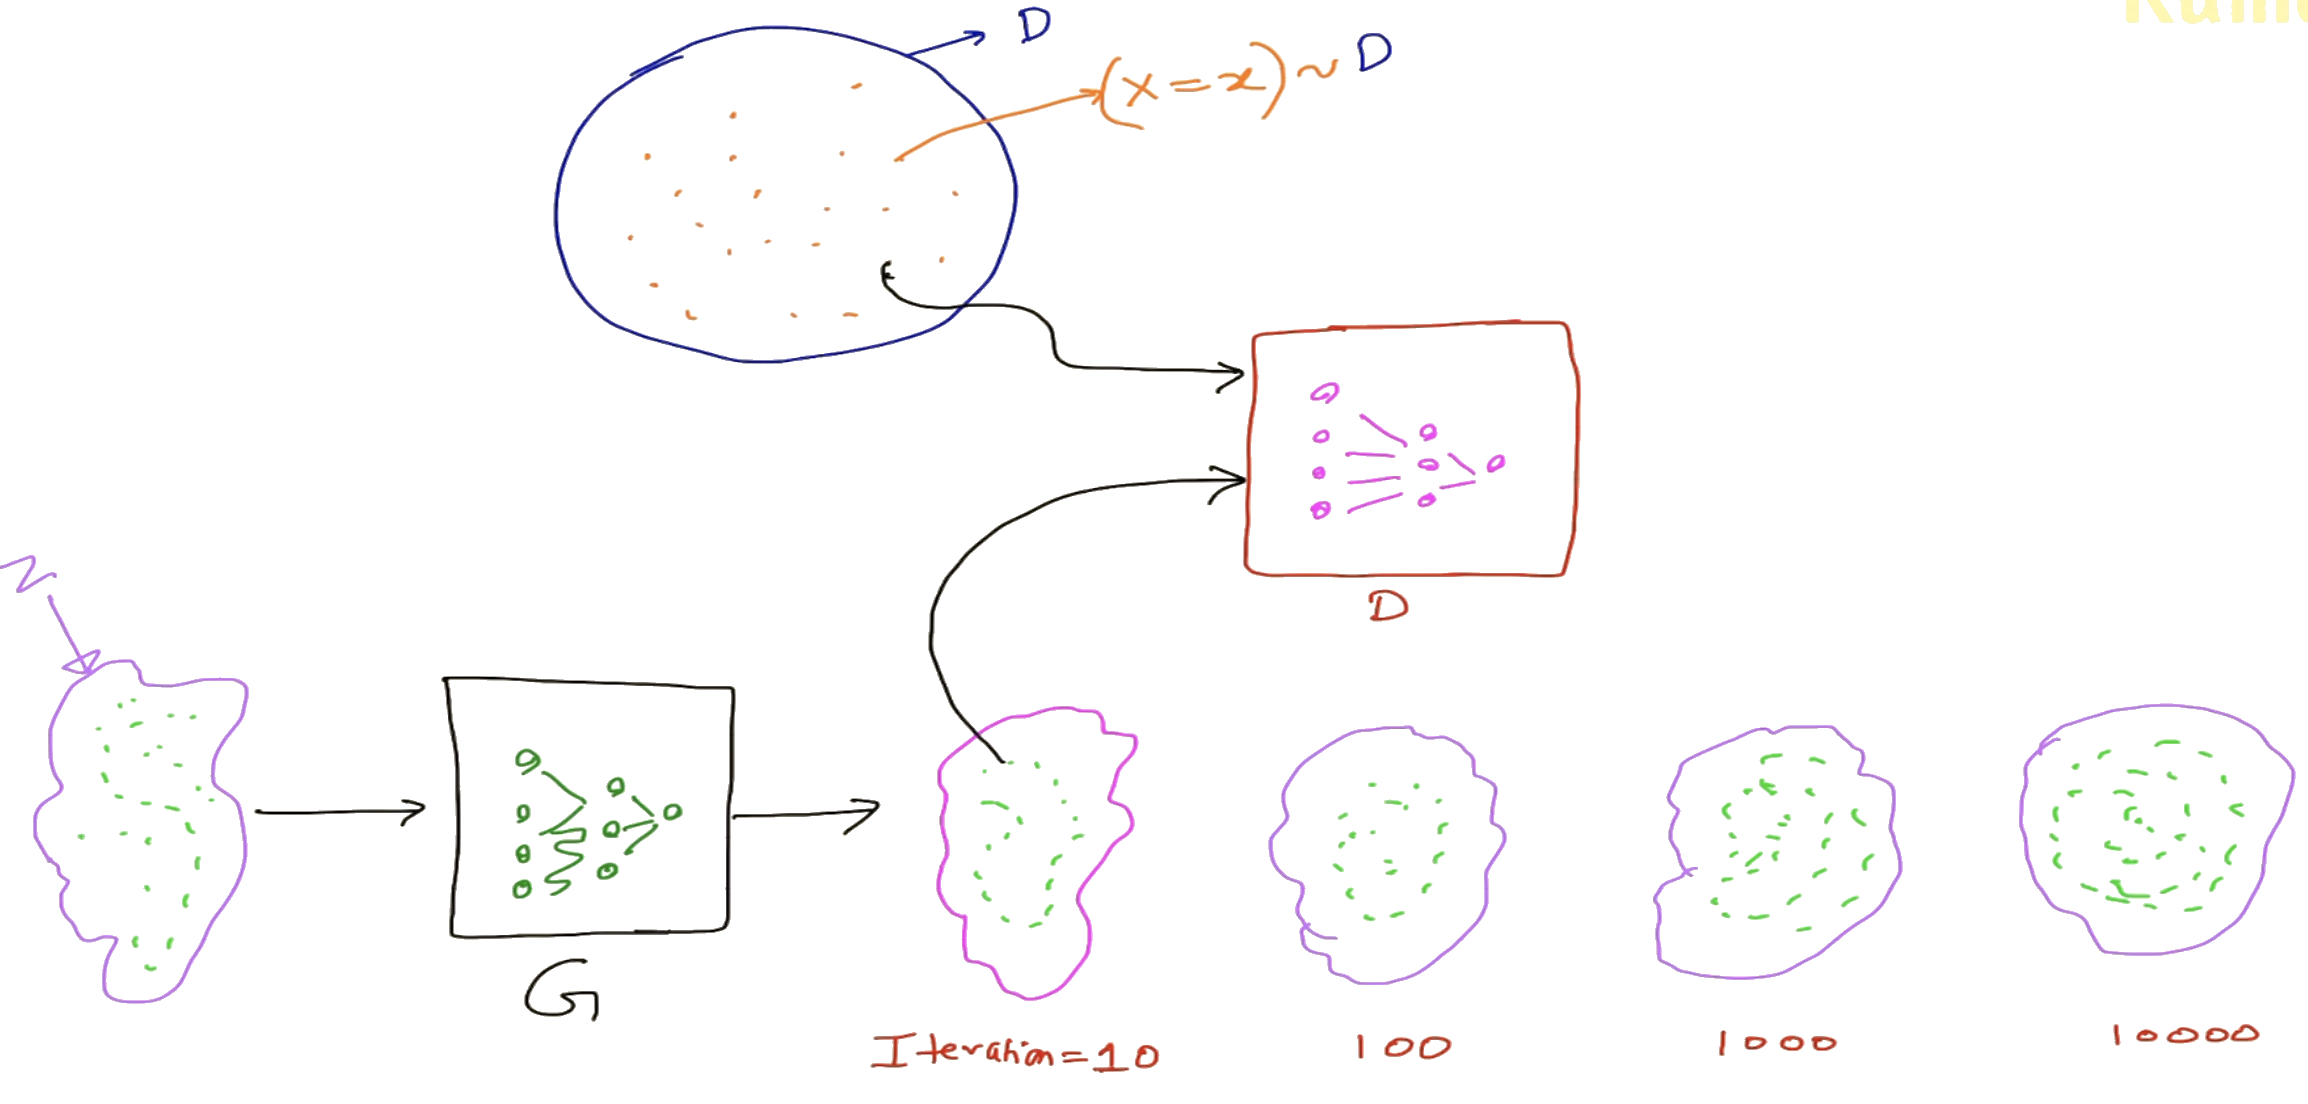 D
(x = x) ~ D
D
N
G
Iteration = 10
100
1000
10000